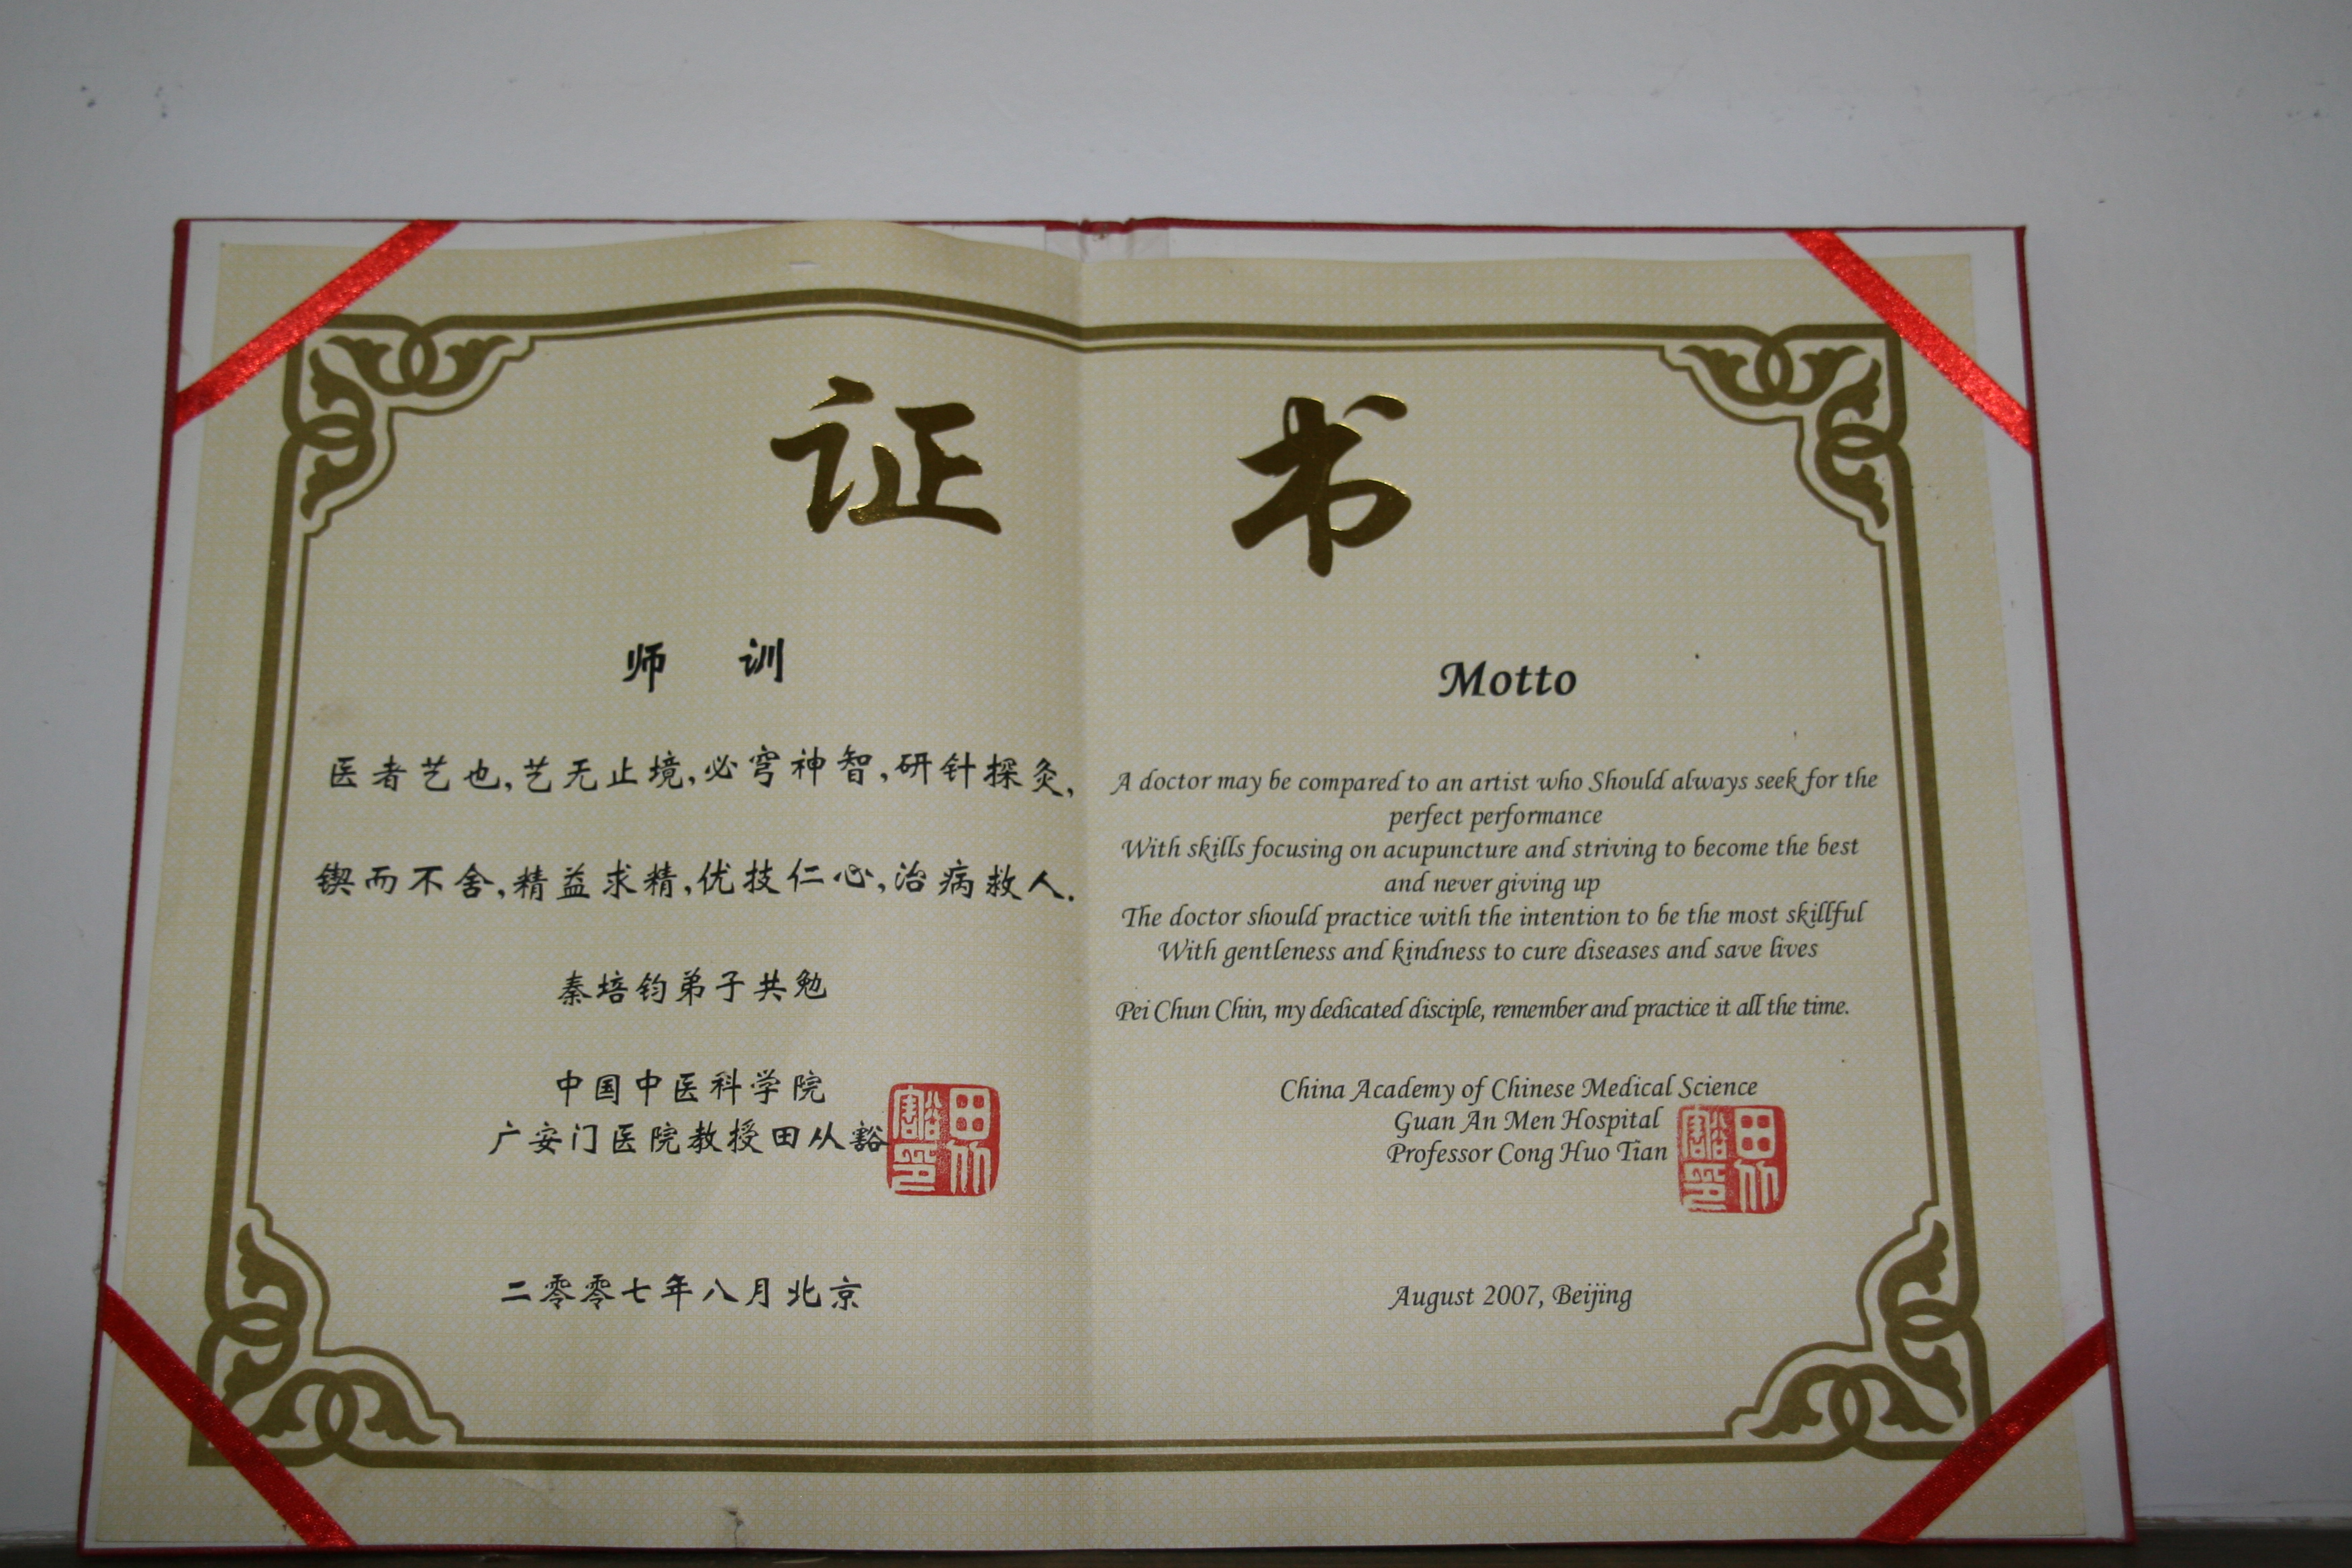 证书
师训
医者艺也,艺无止境,必穹神智,研针探灸,
锲而不舍,精益求精,优技仁心,治病救人.
秦培钧弟子共勉
中国中医科学院
广安门医院教授田从豁
二零零七年八月北京
Motto
A doctor may be compared to an artist who Should always seek for the
perfect performance
With skills focusing on acupuncture and striving to become the best
and never giving up
The doctor should practice with the intention to be the most skillful
With gentleness and kindness to cure diseases and save lives
Pei Chun Chin, my dedicated disciple, remember and practice it all the time.
China Academy of Chinese Medical Science
Guan An Men Hospital
Professor Cong Huo Tian
August 2007, Beijing